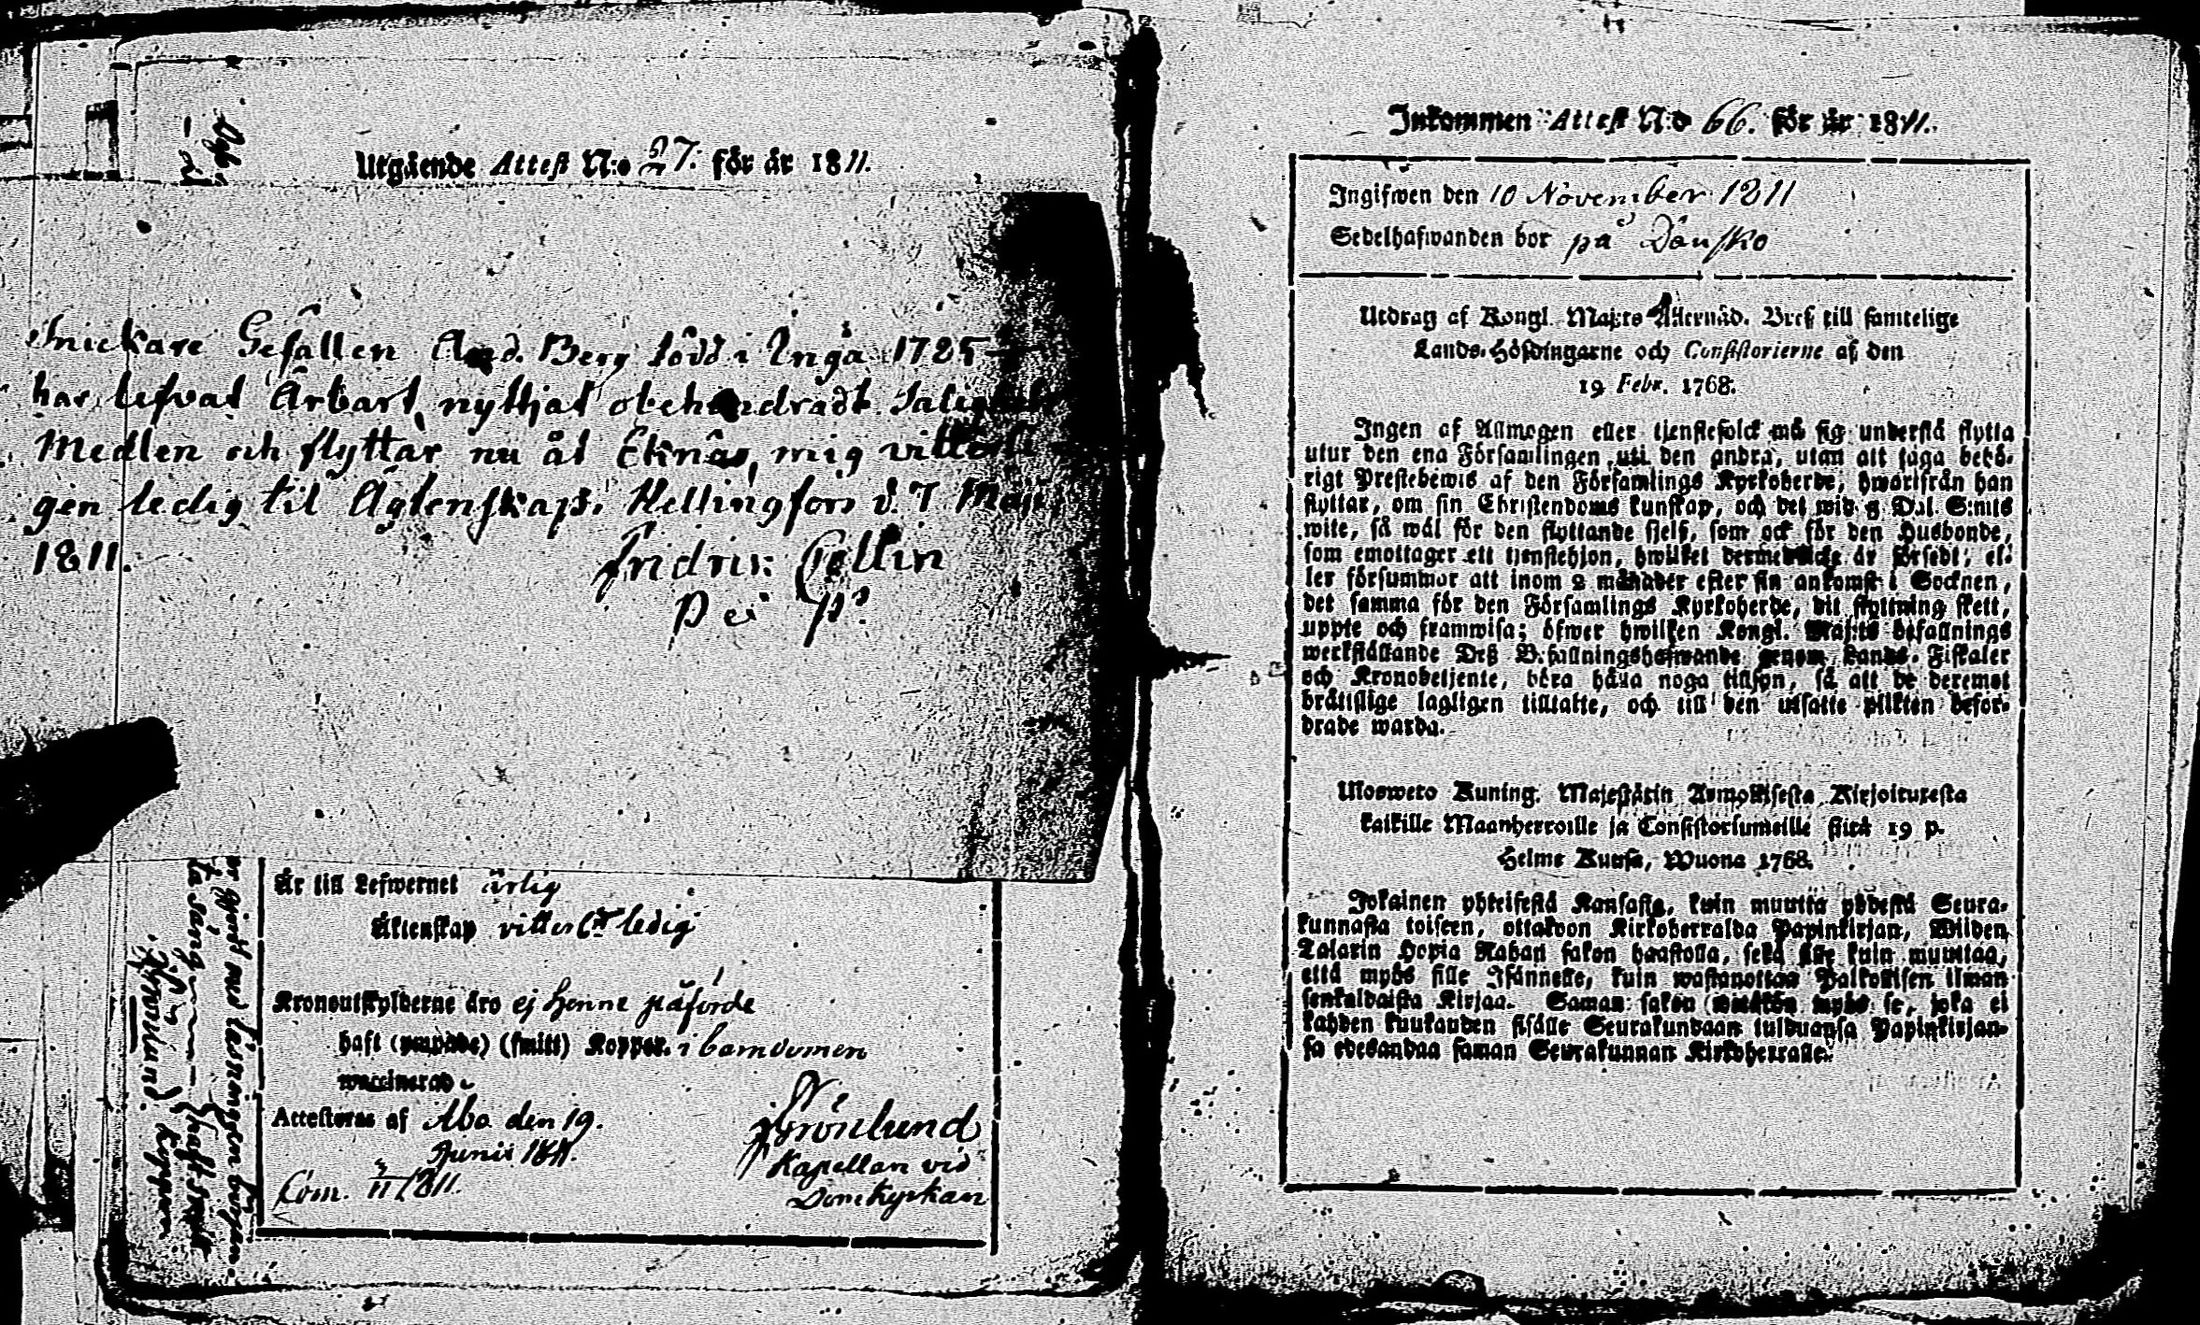 Utgående Attest N:o 27. för år 1811.
Snickare Gesällen And. Berg född i Ingå 1785
har lefvat Ärbart, nyttjat obehindradt Salighets
Medlen och flyttar nu åt Eknäs, mig vitterl
gen ledig til Ägtenskap. Helsingfors d. 7 Maji
1811.
Fridric: Cellin
Är till Lefwernet ärlig
Äktenskap vitterl:n ledig
Kronoutskylderne äro ej henne påförde
haft (ympade) (smitt) Koppor. i barndomen
waccinerad
Attesteras af Åbo den 19.
Junii 1811.
Grönlund
Kapellan vid
Domkyrkan
Com. 3/11 1811.
Inkommen Attest N:o 66. för år 1811.
Ingifwen den 10 November 1811
Sedelhafwanden bor på Dansko
Utdrag af Kongl. Maj:ts Allernåd. Bref till samtelige
Lands-Höfdingarne och Consistorierne af den
19 Febr. 1768.
Ingen af Allmogen eller tjenstefolck må sig understå flytta
utur den ena Församlingen uti den andra, utan att taga behö-
rigt Prestebewis af den Församlings Kyrkoherde, hwarifrån han
flyttar, om sin Christendoms kunskap, och det wid 5 Dal. S:mts
wite, så wäl för den flyttande sjelf, som ock för den Husbonde,
som emottager ett tjenstehjon, hwilket dermed icke är försedt; el-
ler försummar att inom 2 månader efter sin ankomst i Socknen,
det samma för den Församlings Kyrkoherde, dit flyttning skett,
uppte och framwisa; öfwer hwilken Kongl. Maj:ts befallnings
werkställande Deß Befallningshafwande genom Lands-Fiskaler
och Kronobetjente, böra hålla noga tillsyn, så att de deremot
bråttslige lagligen tilltalte, och till den utsatte plikten beför-
drade warda.
Ulosweto Kuning. Majestätin Armollisesta Kirjoituxesta
kaikille Maanherroille ja Consistoriumeille siitä 19 p.
Helme Kuusa, Wuona 1768.
Jokainen yhteisestä Kansasta, kuin muutta yhdestä Seura-
kunnasta toiseen, ottakoon Kirkoherralda Papinkirjan, Wiiden
Talarin Hopia Rahan sakon haastolla, sekä sille kuin muuttaa,
että myös sille Isännelle, kuin wastanottaa Palkollisen ilman
senkaldaista Kirjaa. Saman sakon wetäkön myös se, joka ei
kahden kuukauden sisälle Seurakundaan tulduansa Papinkirjan-
sa edesandaa saman Seurakunnan Kirkoherralle.